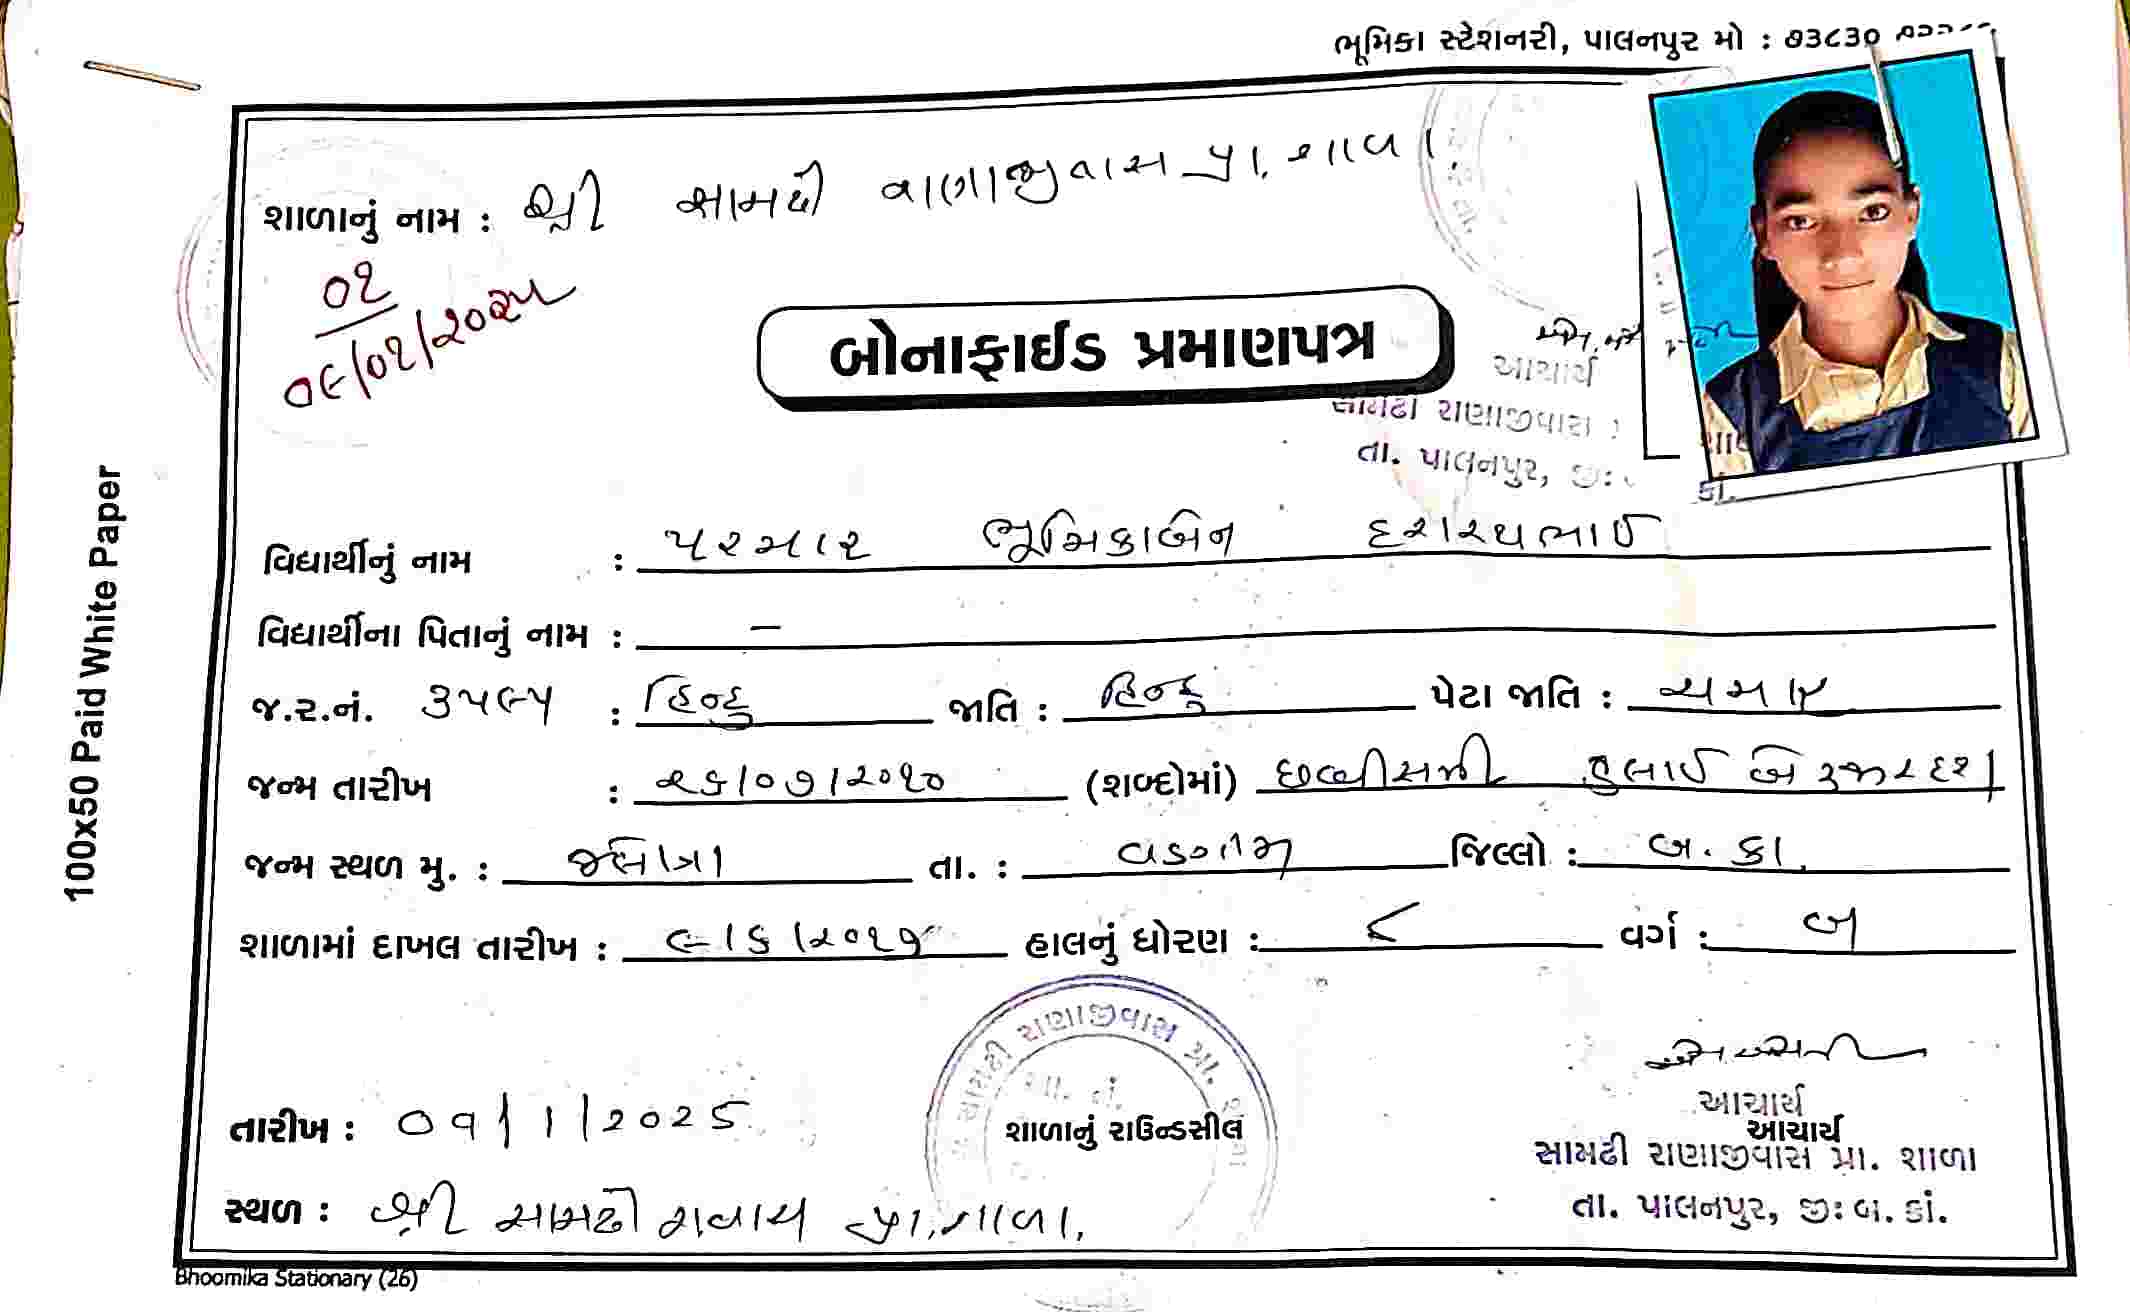 ભૂમિકા સ્ટેશનરી, પાલનપુર મો : ૭૩૮૩૦
શાળાનું નામ : શ્રી સામઢી રાણાજીવાસ પ્રા. શાળા
૦૧
૦૯/૦૧/૨૦૨૫
બોનાફાઈડ પ્રમાણપત્ર
આચાર્ય
સામઢી રાણાજીવાસ
તા. પાલનપુર, જી:
વિદ્યાર્થીનું નામ : પરમાર ભૂમિકાબેન દશરથભાઈ
વિદ્યાર્થીના પિતાનું નામ : –
જ.ર.નં. ૩૫૯૫ : હિન્દુ જાતિ : હિન્દુ પેટા જાતિ : ચમાર
જન્મ તારીખ : ૨૬/૦૭/૨૦૧૦ (શબ્દોમાં) છવ્વીસમી જુલાઈ બે હજાર દશ
જન્મ સ્થળ મુ. : જલોત્રા તા. : વડગામ જિલ્લો : બ. કાં.
શાળામાં દાખલ તારીખ : ૯/૬/૨૦૧૭ હાલનું ધોરણ : ૮ વર્ગ : બ
તારીખ : 09/1/2025
સામઢી રાણાજીવાસ પ્રા. શાળા
શાળાનું રાઉન્ડસીલ
આચાર્ય
આચાર્ય
સામઢી રાણાજીવાસ પ્રા. શાળા
તા. પાલનપુર, જી: બ. કાં.
સ્થળ : શ્રી સામઢી રાવાસ પ્રા. શાળા,
Bhoomika Stationary (26)
100x50 Paid White Paper